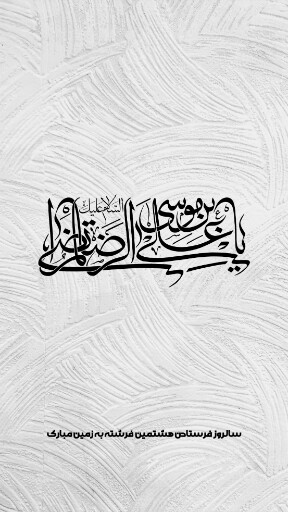 السلام علیک
یا علی بن موسی الرضا المرتضی
سالروز فرستادن هشتمین فرشته به زمین مبارک